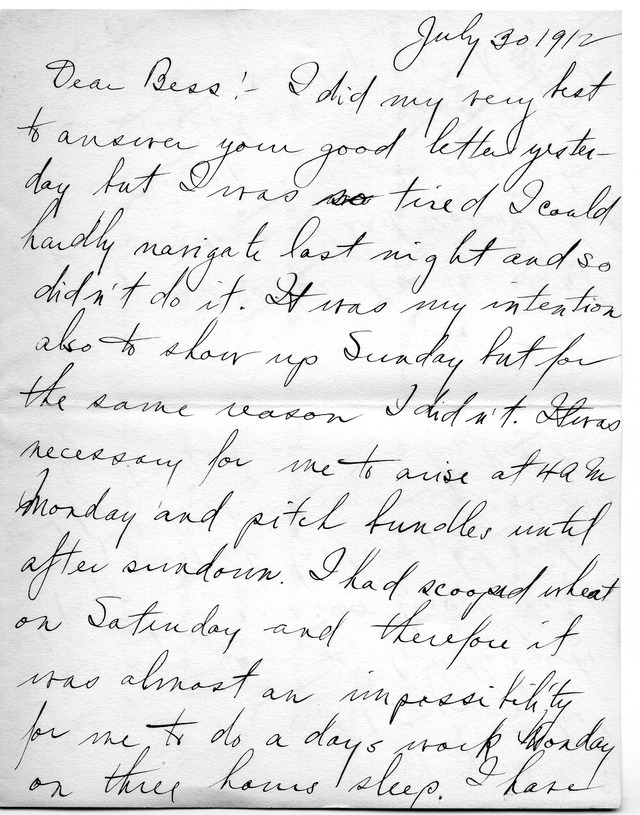 July 30 1912
Dear Bess:- I did my very best
to answer your good letter yester-
day but I was so tired I could
hardly navigate last night and so
didn't do it. It was my intention
also to show up Sunday but for
the same reason I didn't. It was
necessary for me to arise at 4 am
Monday and pitch bundles until
after sundown. I had scooped wheat
on Saturday and therefore it
was almost an impossibility
for me to do a days work Monday
on three hours sleep. I have